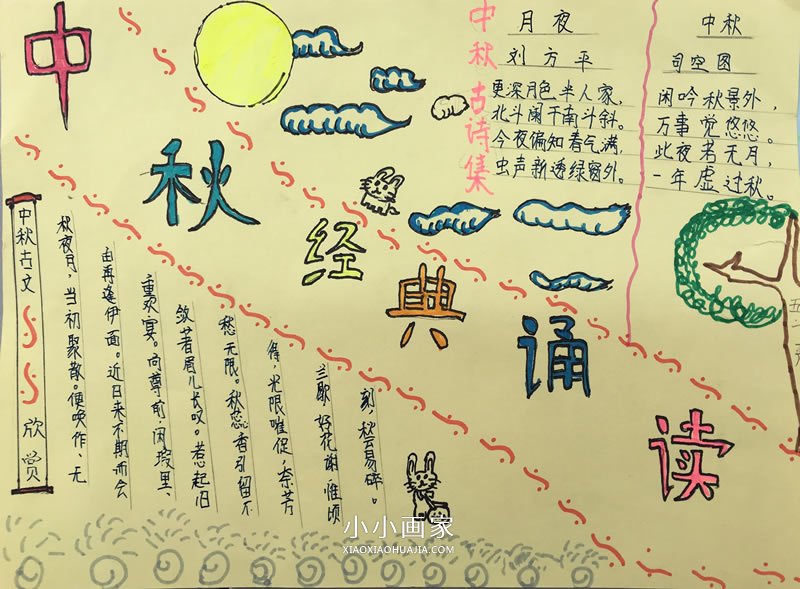 中
秋
经
典
诵
读
中秋古诗集
月夜
刘方平
更深月色半人家,
北斗闲干南斗斜。
今夜偏知春气满,
虫声新透绿窗外。
中秋
司空图
闲吟秋景外,
万事觉悠悠。
此夜若无月,
一年虚过秋。
中秋古文欣赏
秋夜月,当初聚散。便唤作、无
由再逢伊面。近日来不期而会
重欢宴。向尊前、闲暇里、
敛著眉儿长叹。惹起旧
愁无限。秋蕊香引留不
得,光限唯促,奈芳
兰歇,好花谢,惟顷
刻,彩云易碎。
小小画家
XIAOXIAOHUAJIA.COM